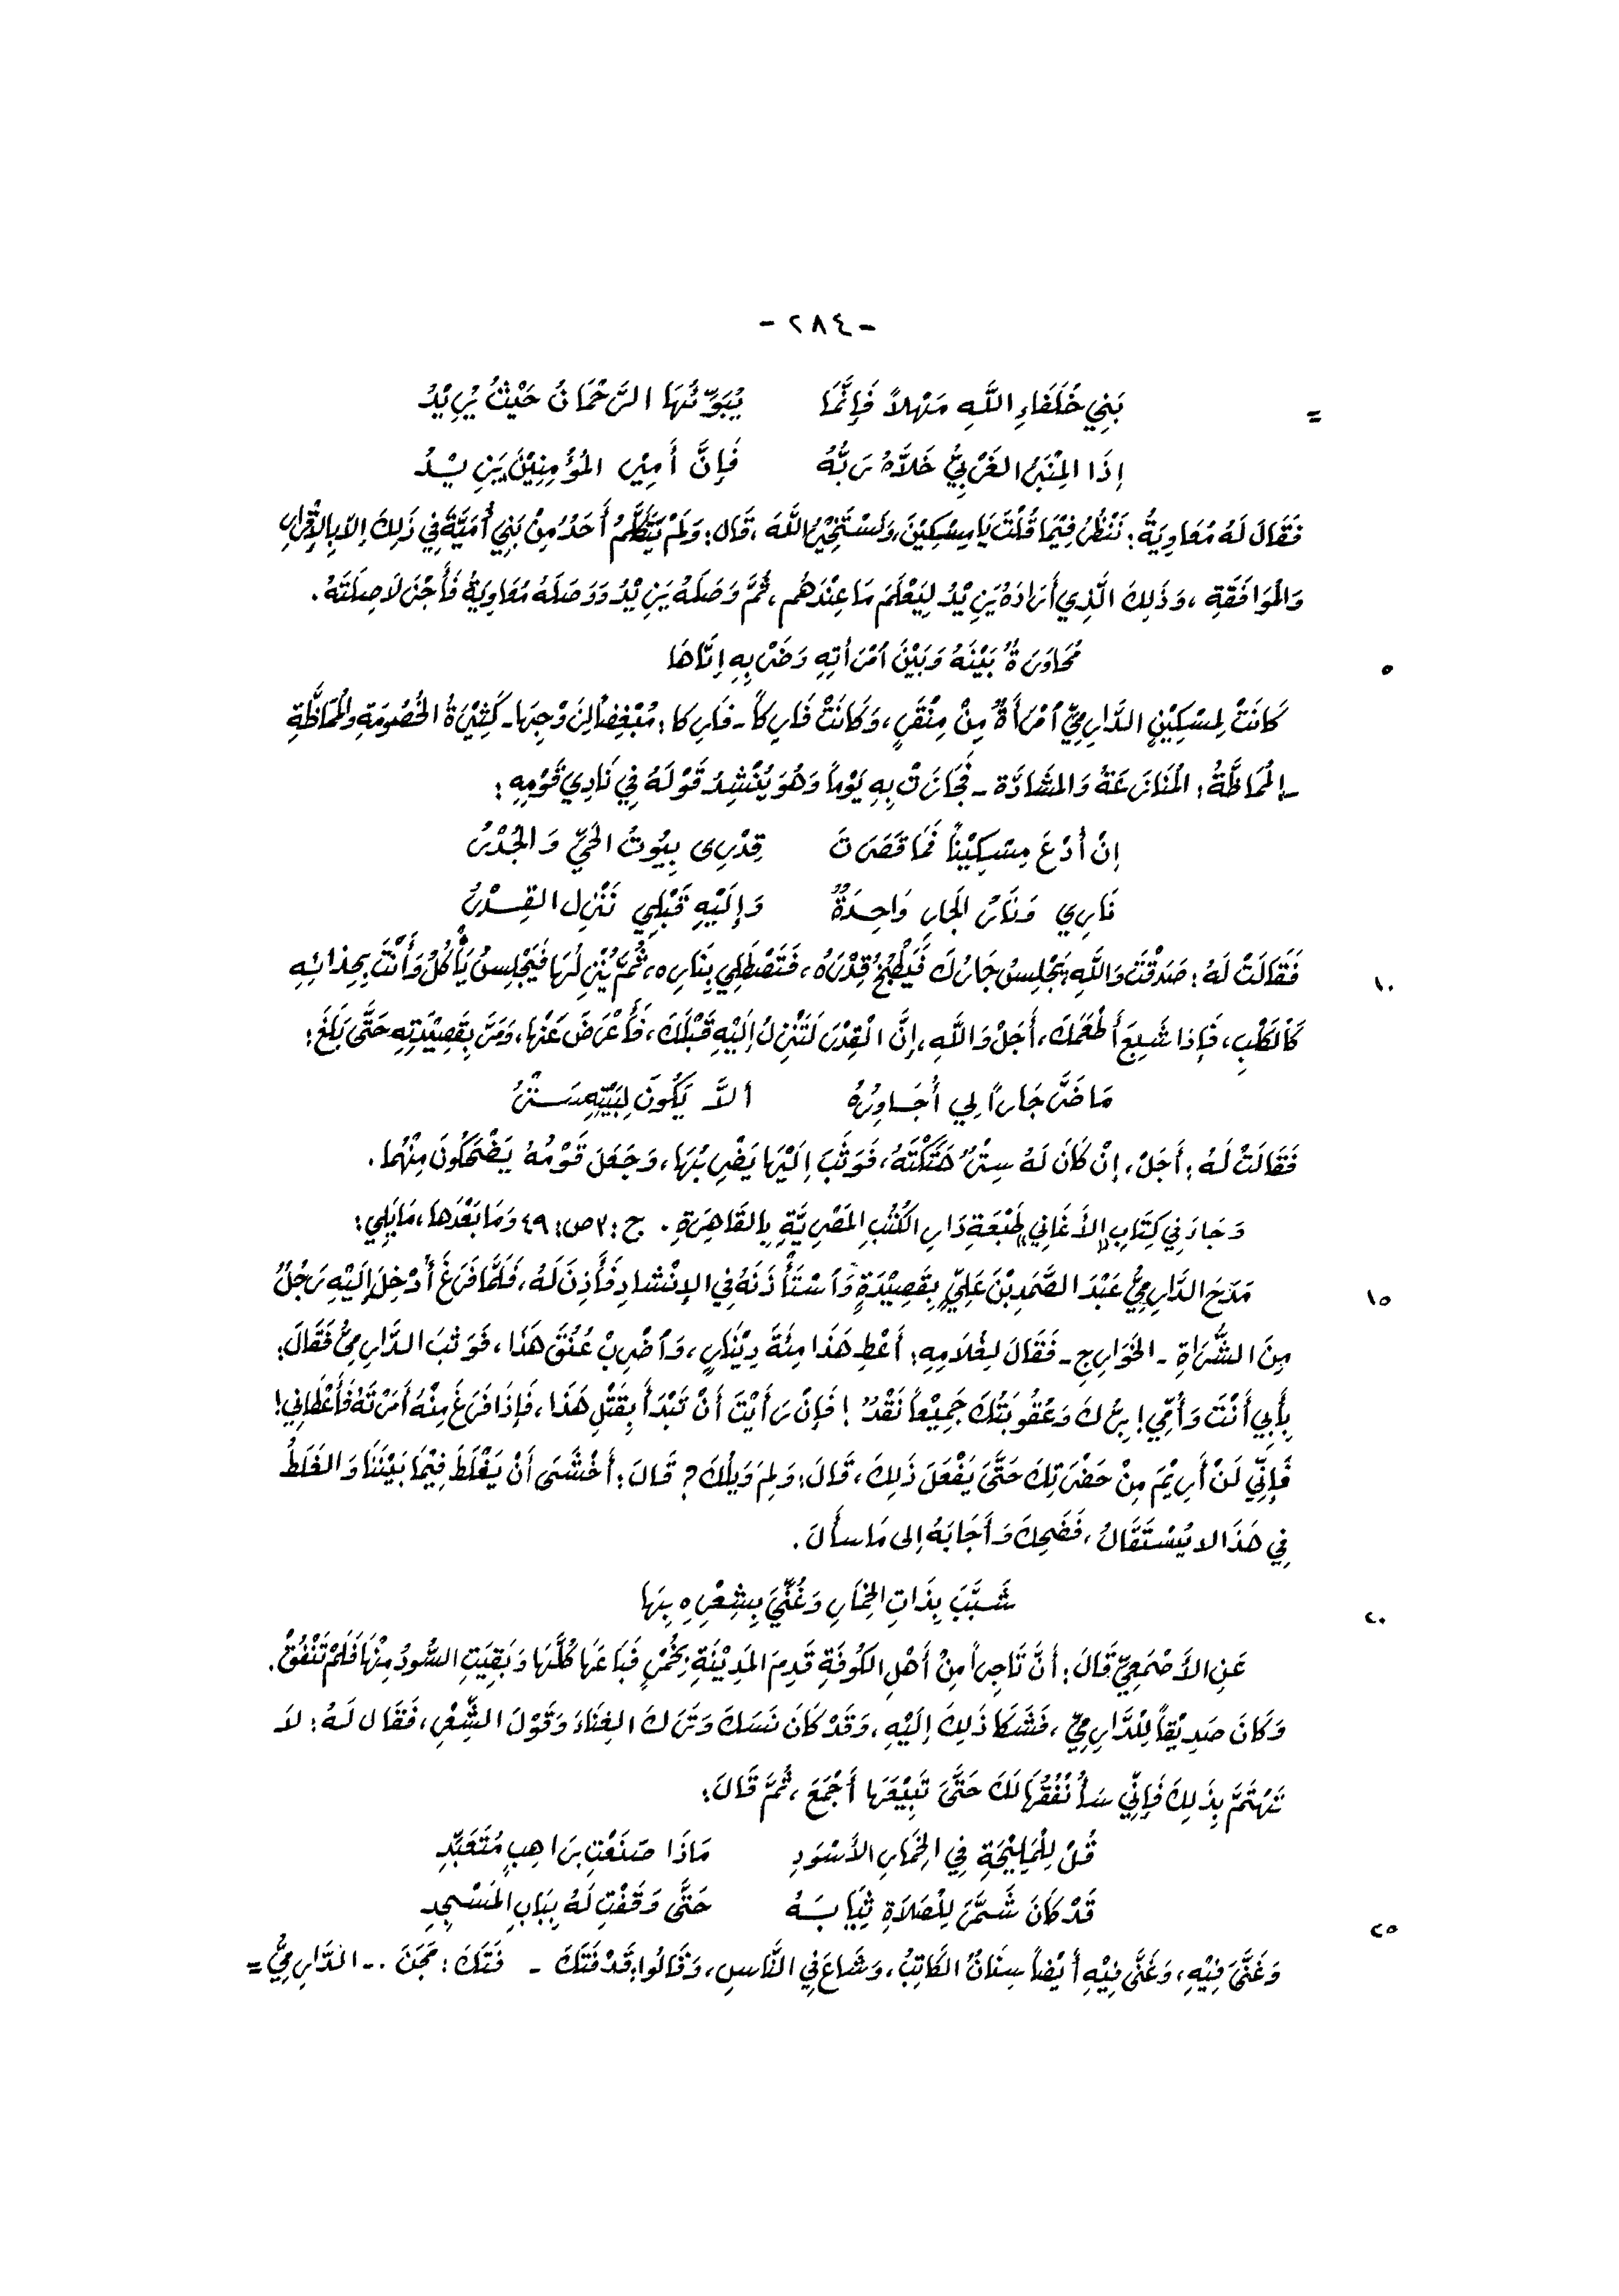 - ٢٨٤ -
= بَنِي خُلَفَاءِ اللَّهِ مَهْلاً فَإِنَّمَا يُبَوِّئُهَا الرَّحْمَانُ حَيْثُ يُرِيْدُ
إِذَا المِنْبَرُ الغَرْبِيُّ خَلاَّهُ رَبُّهُ فَإِنَّ أَمِيْرَ المُؤْمِنِيْنَ يَزِيْدُ
فَقَالَ لَهُ مُعَاوِيَةُ: نَنْظُرُ فِيْمَا قُلْتَ يَا مِسْكِيْنُ، وَنَسْتَخِيْرُ اللَّهَ، قَالَ: وَلَمْ يَتَكَلَّمْ أَحَدٌ مِنْ بَنِي أُمَيَّةَ فِي ذَلِكَ إِلاَّ بِالإِقْرَارِ
وَالمُوَافَقَةِ، وَذَلِكَ الَّذِي أَرَادَهُ يَزِيْدُ لِيَعْلَمَ مَا عِنْدَهُم، ثُمَّ وَصَلَهُ يَزِيْدُ وَوَصَلَهُ مُعَاوِيَةُ فَأَجْزَلاَ صِلَتَهُ.
٥ مُحَاوَرَةٌ بَيْنَهُ وَبَيْنَ اَمْرَأتِهِ وَضَرْبِهِ إِيَّاهَا
كَانَتْ لِمِسْكِيْنٍ الدَّارِمِيِّ اَمْرَأَةٌ مِنْ مِنْقَرٍ، وَكَانَتْ فَارِكاً - فَارِكا: مُبْغِضاً لِزَوْجِهَا - كَثِيْرَةُ الخُصُومَةِ وَالمُمَاظَّةِ
- المُمَاظَّةُ: المُنَازَعَةُ وَالمشَادَّة - فَجَازَتْ بِهِ يَوْماً وَهُوَ يُنْشِدُ قَوْلَهُ فِي نَادِي قَوْمِهِ:
إِنْ أُدْعَ مِسْكِيْناً فَمَا قَصَرَتْ قِدْرِى بِيُوتُ الحَيِّ وَالجُدْرُ
نَارِي وَنَارُ الجَارِ وَاحِدَةٌ وَإِلَيْهِ قَبْلِي تَنْزِلُ القِدْرُ
١٠ فَقَالَتْ لَهُ: صَدَقْتَ وَاللَّهِ، يَجْلِسُ جَارُكَ فَيَطْبُخُ قِدْرَهُ، فَتَصْطَلِي بِنَارِهِ، ثُمَّ يُنْزِلُهَا فَيَجْلِسُ يَأْكُلُ وَأَنْتَ بِحِذَائِهِ
كَالكَلْبِ، فَإِذا شَبِعَ أَطْعَمَكَ، أَجَلْ وَاللَّهِ، إِنَّ الْقِدْرَ لَتَنْزِلُ إِلَيْهِ قَبْلَكَ، فَأَعْرَضَ عَنْهَا، وَمَرَّ بِقَصِيْدَتِهِ حَتَّى بَلَغَ:
مَا ضَرَّ جَاراً لِي أُجَاوِرُهُ أَلاَّ يَكُونَ لِبَيْتِهِ سَتْرُ
فَقَالَتْ لَهُ: أَجَلْ، إِنْ كَانَ لَهُ سِتْرٌ هَتَكْتَهُ، فَوَثَبَ إِلَيْهَا يَضْرِبُهَا، وَجَعَلَ قَوْمُهُ يَضْحَكُونَ مِنْهُما.
وَجَاءَ فِي كِتَابِ «الأَغَانِي» طَبْعَةِ دَارِ الكُتُبِ المَصْرِيَّةِ بِالقَاهِرَةِ. ج: ٣ ص: ٤٩ وَمَا بَعْدَهَا، مَا يَلِي:
١٥ مَدَحَ الدَّارِمِيُّ عَبْدَ الصَّمَدِ بْنَ عَلِيٍّ بِقَصِيْدَةٍ وَاَسْتَأْذَنَهُ فِي الإِنْشَادِ فَأَذِنَ لَهُ، فَلَمَّا فَرَغَ أُدْخِلَ إِلَيْهِ رَجُلٌ
مِنَ الشُّرَاةِ - الخَوَارِجِ - فَقَالَ لِغُلاَمِهِ: أَعْطِ هَذَا مِئَةَ دِيْنَارٍ، وَاَضْرِبْ عُنُقَ هَذَا، فَوَثَبَ الدَّارِمِيُّ فَقَالَ:
بِأَبِي أَنْتَ وَأُمِّي! بِرُّكَ وَعُقُوبَتُكَ جَمِيْعاً نَقْدٌ! فَإِنْ رَأَيْتَ أَنْ تَبْدَأَ بِقَتْلِ هَذَا، فَإِذَا فَرَغَ مِنْهُ أَمَرْتَهُ فَأَعْطَانِي!
فَإِنِّي لَنْ أَرِيْمَ مِنْ حَضْرَتِكَ حَتَّى يَفْعَلَ ذَلِكَ، قَالَ: وَلِمَ وَيْلَكَ؟ قَالَ: أَخْشَى أَنْ يَغْلَطَ فِيْمَا بَيْنَنَا وَالغَلَطُ
فِي هَذَا لا يُسْتَقَالُ، فَضَحِكَ وَأَجَابَهُ إلى مَا سأَلَ.
٢٠ شَبَّبَ بِذَاتِ الخِمَارِ وَغُنِّيَ بِشِعْرِهِ بِهَا
عَنِ الأَصْمَعِيِّ قَالَ: أَنَّ تَاجِراً مِنْ أَهْلِ الكُوفَةِ قَدِمَ المَدِيْنَةِ بِخُمُرٍ فَبَاعَهَا كُلَّهَا وَبَقِيَتِ السُّودُ مِنْهَا فَلَمْ تَنْفُقْ.
وَكَانَ صَدِيْقاً لِلْدَّارِمِيِّ، فَشَكَا ذَلِكَ إِلَيْهِ، وَقَدْ كَانَ نَسَكَ وَتَرَكَ الغِنَاءَ وَقَوْلَ الشِّعْرِ، فَقَال لَهُ: لاَ
تَهْتَمَّ بِذَلِكَ فَإِنِّي سَأُنَفِّقُهَا لَكَ حَتَّى تَبِيْعَهَا أَجْمَعَ، ثُمَّ قَالَ:
قُلْ لِلْمَلِيْحَةِ فِي الخِمَارِ الأَسْوَدِ مَاذَا صَنَعْتِ بِرَاهِبٍ مُتَعَبِّدِ
قَدْ كَانَ شَمَّرَ لِلْصَلاَةِ ثِيَابَهُ حَتَّى وَقَفْتِ لَهُ بِبَابِ المَسْجِدِ
٢٥ وَغَنَّى فِيْهِ، وَغَنَّى فِيْهِ أَيْضاً سِنَانٌ الكَاتِبُ، وَشَاعَ فِي النَّاسِ، وَقَالُوا: قَدْ فَتَكَ - فَتَكَ: مَجَنَ .- الدَّارِمِيُّ =